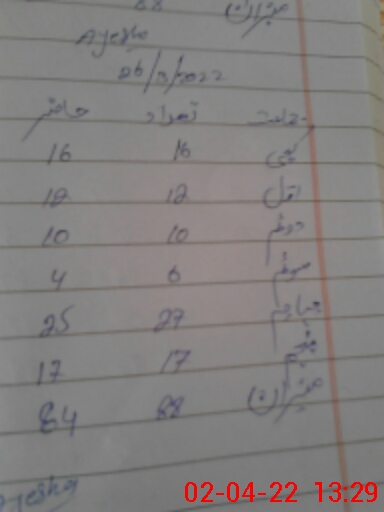 میزان 88
Ayesha
26/3/2022
جماعت تعداد حاضر
کچی 16 16
اول 12 12
دوئم 10 10
سوئم 6 4
چہارم 27 25
پنجم 17 17
میزان 88 84
Ayesha
02-04-22 13:29